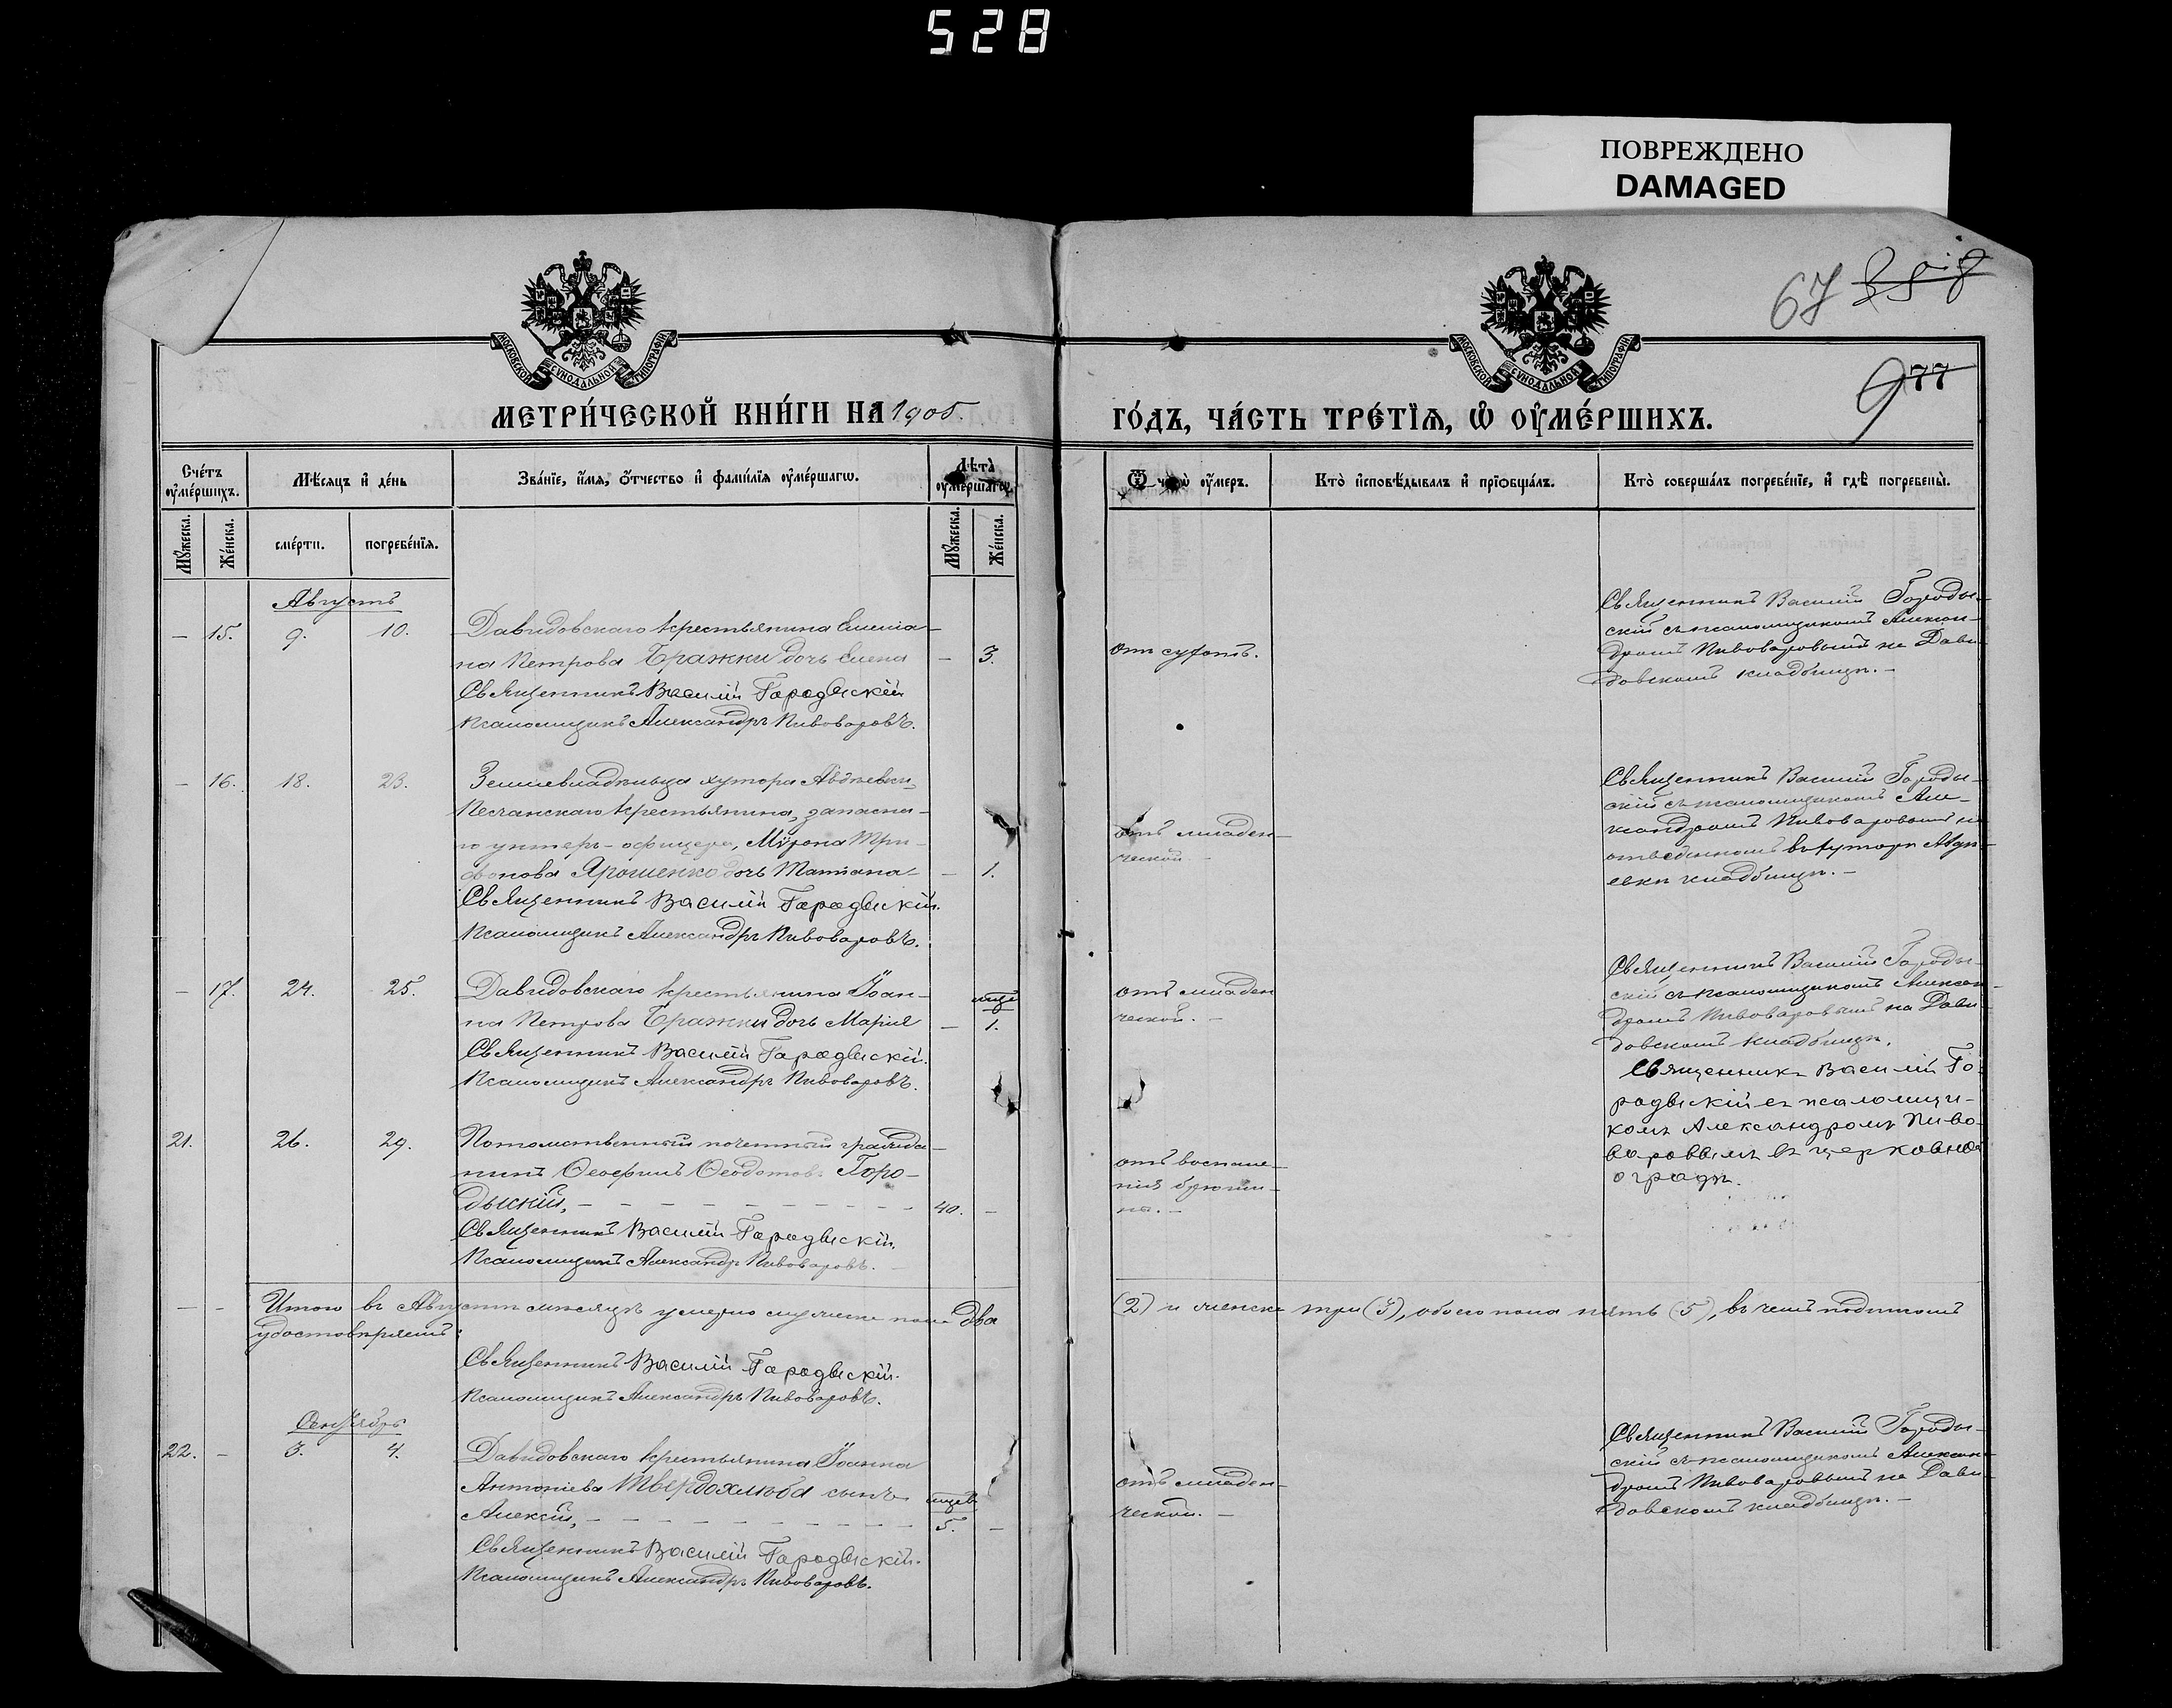 528
ПОВРЕЖДЕНО
DAMAGED
67
977
МОСКОВСКОЙ СѴНОДАЛЬНОЙ ТИПОГРАФІИ
МОСКОВСКОЙ СѴНОДАЛЬНОЙ ТИПОГРАФІИ
МЕТРИ́ЧЕСКОЙ КНИ́ГИ НА 1905.
ГО́ДЪ, ЧА́СТЬ ТРЕ́ТЇѦ, Ѡ҆ ОУ҆МЕ́РШИХЪ.
Сче́тъ оу҆ме́ршихъ.
Мѣ́сяцъ и҆ де́нь
Зва́нїе, и҆́мѧ, ѻ҆́тчество и҆ фами́лїѧ оу҆ме́ршагѡ.
Лѣ́та оу҆ме́ршагѡ.
Ѿ чегѡ̀ оу҆́меръ.
Кто̀ и҆сповѣ́дывалъ и҆ прїѻбща́лъ.
Кто̀ соверша́лъ погребе́нїе, и҆ гдѣ̀ погребены̀.
Мꙋ́жеска.
Же́нска.
сме́рти.
погребе́нїѧ.
Мꙋ́жеска.
Же́нска.
Августъ
— 15. 9. 10.
Давидовскаго крестьянина Емелiа-
на Петрова Бражки дочь Елена — 3.
Священникъ Василій Городыскій
Псаломщикъ Александръ Пивоваровъ.
Священникъ Василій Городы-
скій съ псаломщикомъ Алексан-
дромъ Пивоваровымъ на Дави-
довскомъ кладбищѣ. —
— 16. 18. 23.
Землевладѣльца хутора Авдѣевки,
Песчанскаго крестьянина, запасна-
го унтеръ-офицера, Мѵрона Три-
фонова Ярошенко дочь Татіана — 1.
Священникъ Василій Городыскій.
Псаломщикъ Александръ Пивоваровъ.
отъ младен-
ческой. —
Священникъ Василій Городы-
скій съ псаломщикомъ Але-
ксандромъ Пивоваровымъ на
отведенномъ въ хуторѣ Авдѣ-
евкѣ кладбищѣ. —
— 17. 24. 25.
Давидовскаго крестьянина Іоан-
на Петрова Бражки дочь Марія — 1.
Священникъ Василій Городыскій.
Псаломщикъ Александръ Пивоваровъ.
отъ младен
ческой. —
Священникъ Василій Городы-
скій съ псаломщикомъ Алексан-
дромъ Пивоваровымъ на Дави
довскомъ кладбищѣ.
21. 26. 29.
Потомственный почетный гражда-
нинъ Ѳеофилъ Ѳеодотовъ Горо-
дыскій, — 40. —
Священникъ Василій Городыскій.
Псаломщикъ Александръ Пивоваровъ.
отъ воспале-
нія брюши-
ны. —
Священникъ Василій Го-
родыскій съ псаломщи-
комъ Александромъ Пиво-
варовымъ въ церковной
оградѣ.
— — Итого въ Августѣ мѣсяцѣ умерло мужеска пола два
(2) и женска три (3), обоего пола пять (5), въ чемъ подписомъ
удостовѣряемъ:
Священникъ Василій Городыскій.
Псаломщикъ Александръ Пивоваровъ.
Сентябрь
22. — 3. 4.
Давидовскаго крестьянина Іоанна
Антоніева Твердохлѣба сынъ
Алексій, — 5. —
Священникъ Василій Городыскій.
Псаломщикъ Александръ Пивоваровъ.
отъ младен-
ческой. —
Священникъ Василій Городы-
скій съ псаломщикомъ Алексан-
дромъ Пивоваровымъ на Дави-
довскомъ кладбищѣ. —